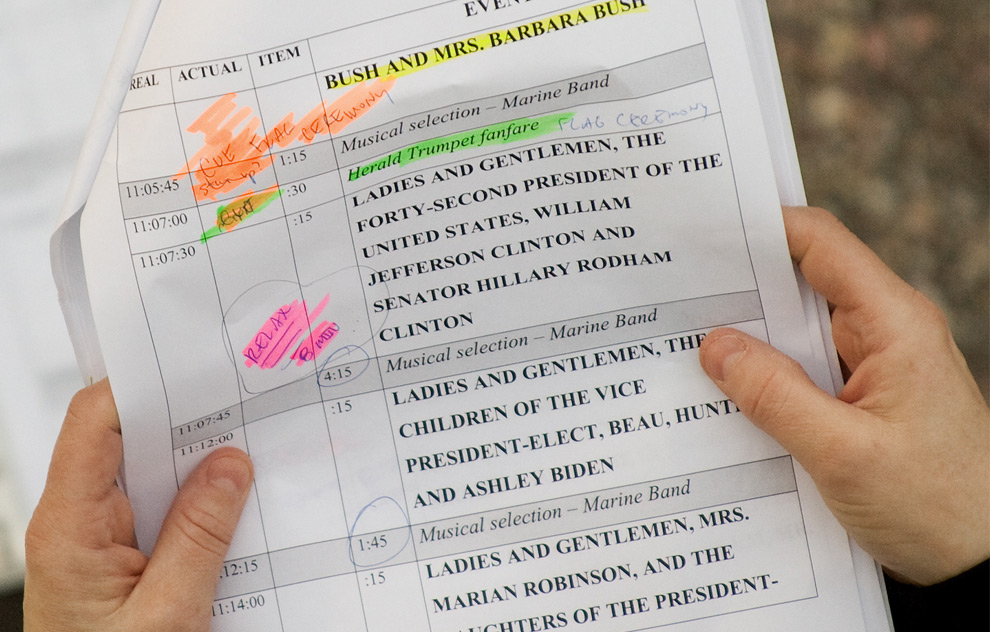 EVEN
REAL ACTUAL ITEM
BUSH AND MRS. BARBARA BUSH
CUE FLAG CEREMONY
11:05:45 1:15 Musical selection – Marine Band
11:07:00 :30 Herald Trumpet fanfare FLAG CEREMONY
11:07:30 :15 LADIES AND GENTLEMEN, THE
FORTY-SECOND PRESIDENT OF THE
UNITED STATES, WILLIAM
JEFFERSON CLINTON AND
SENATOR HILLARY RODHAM
CLINTON
RELAX
8/min
11:07:45 4:15 Musical selection – Marine Band
11:12:00 :15 LADIES AND GENTLEMEN, THE
CHILDREN OF THE VICE
PRESIDENT-ELECT, BEAU, HUNT
AND ASHLEY BIDEN
:12:15 1:45 Musical selection – Marine Band
11:14:00 :15 LADIES AND GENTLEMEN, MRS.
MARIAN ROBINSON, AND THE
AUGHTERS OF THE PRESIDENT-